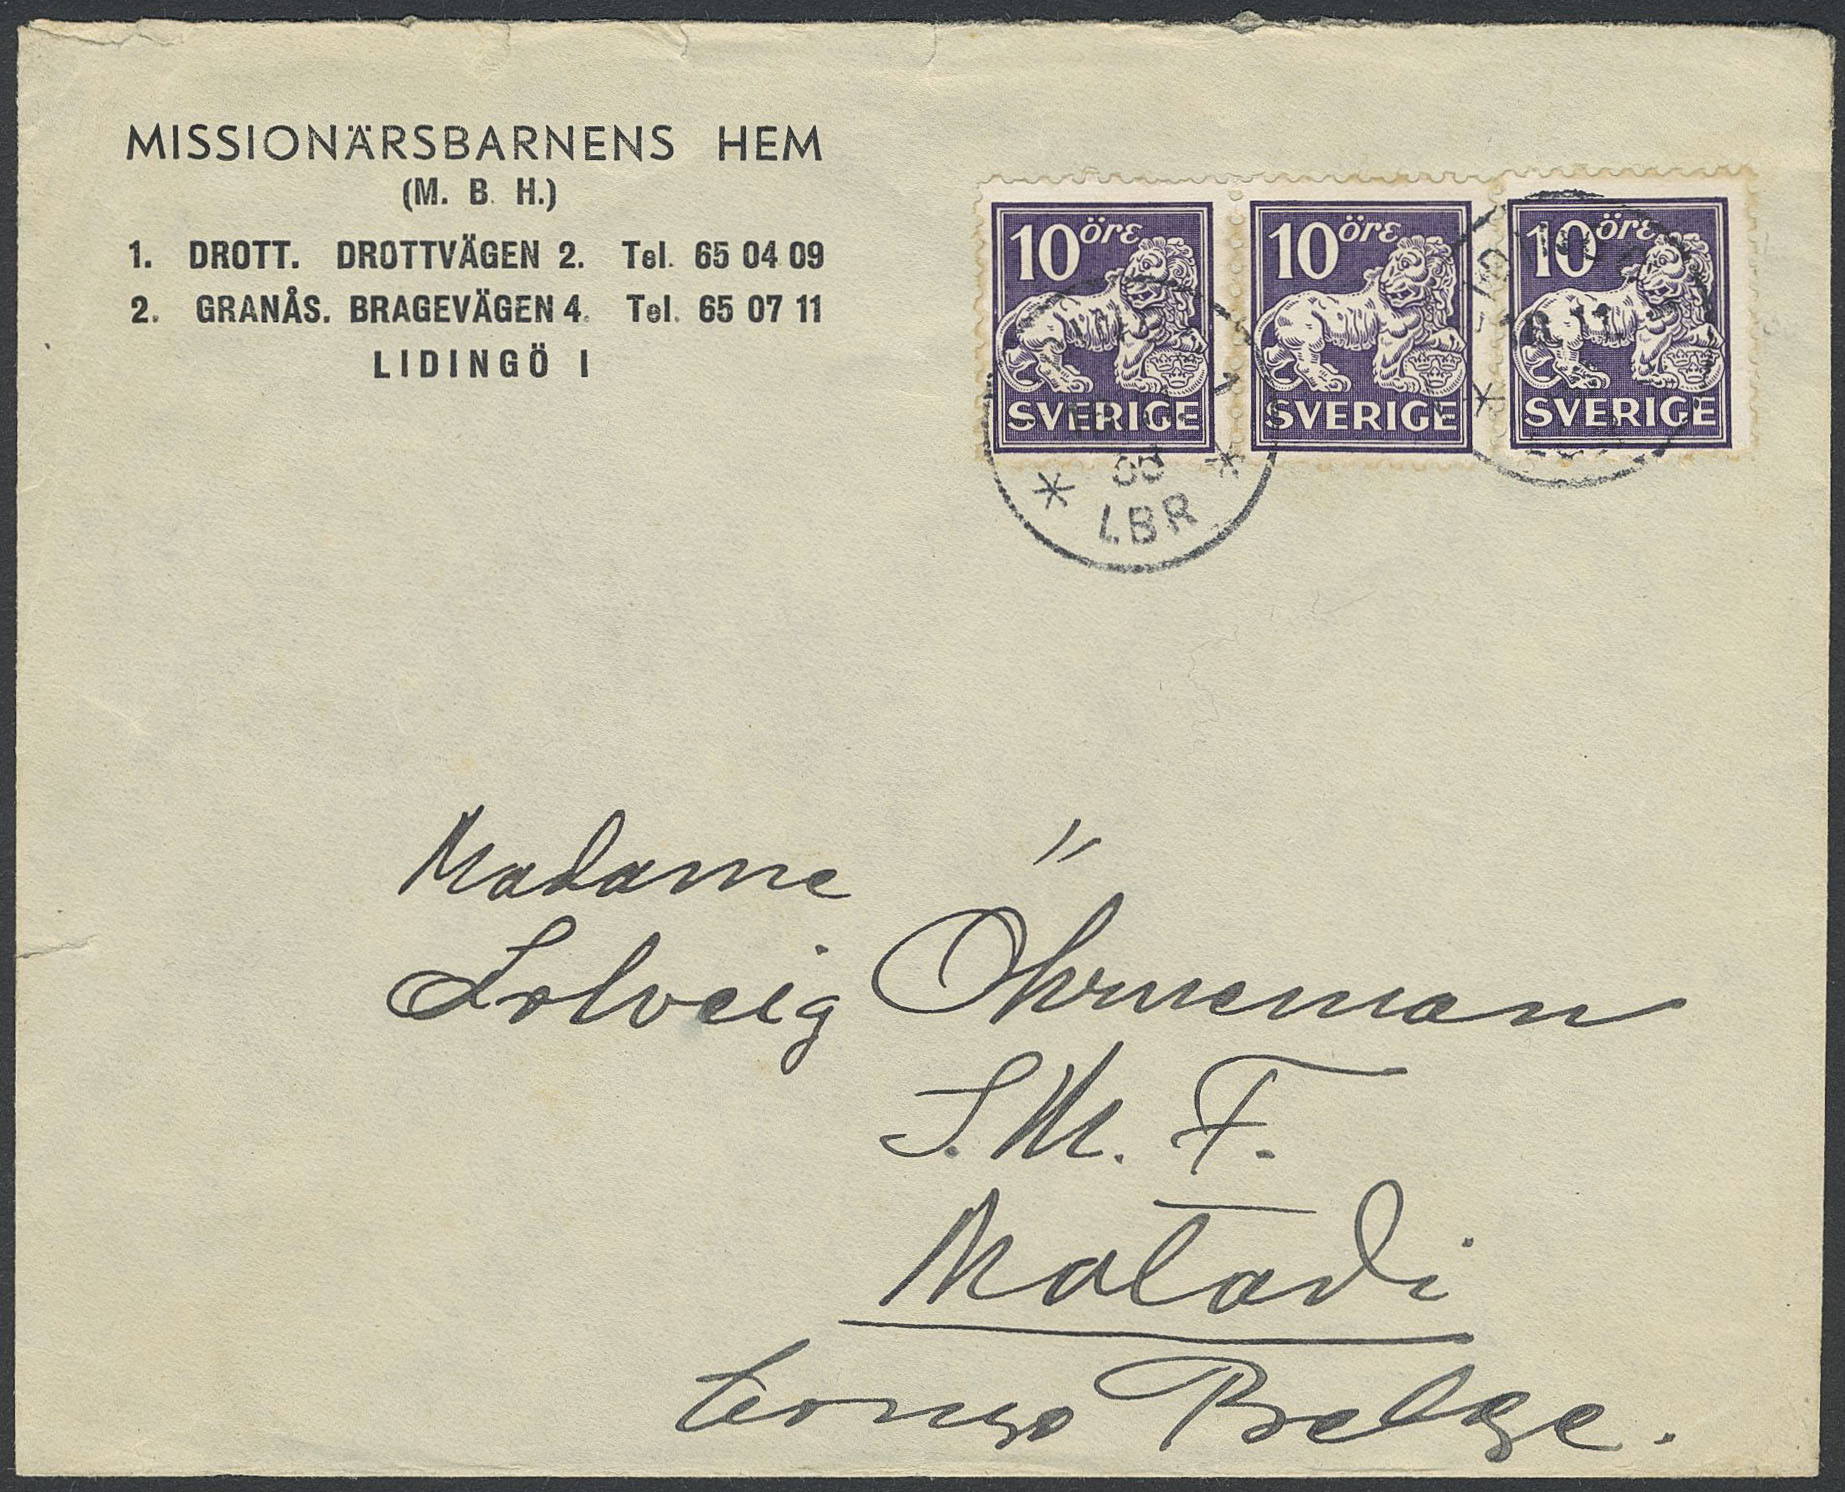 MISSIONÄRSBARNENS HEM
(M. B. H.)
1. DROTT. DROTTVÄGEN 2. Tel. 65 04 09
2. GRANÅS. BRAGEVÄGEN 4. Tel. 65 07 11
LIDINGÖ 1
10 öre
SVERIGE
10 öre
SVERIGE
10 öre
SVERIGE
LBR
Madame
Solveig Öhrneman
S.M.F.
Matadi
Congo Belge.